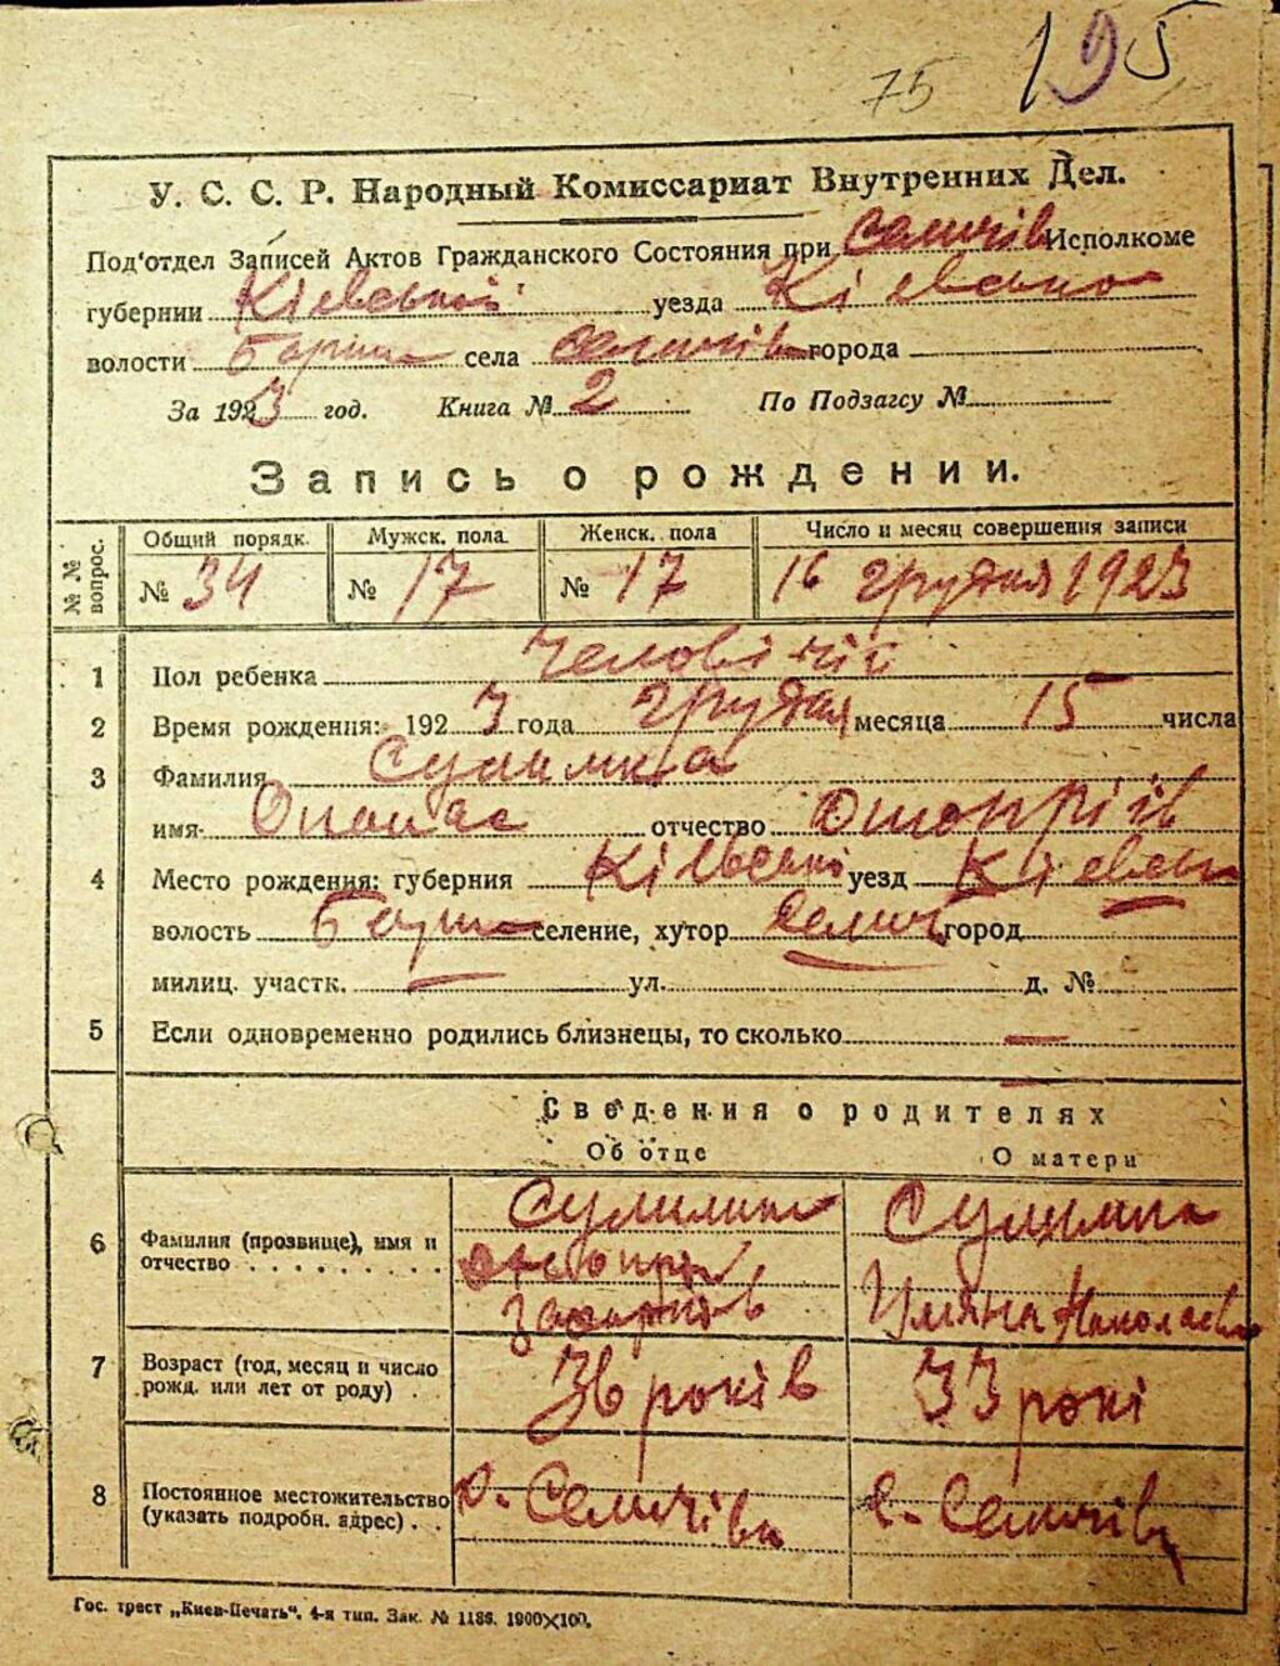 75 195
У. С. С. Р. Народный Комиссариат Внутренних Дел.
Под'отдел Записей Актов Гражданского Состояния при Семичів Исполкоме
губернии Кіевської уезда Кіевсько
волости села Семичів города
За 1923 год. Книга № 2 По Подзагсу №
Запись о рождении.
№ № вопрос. Общий порядк. Мужск. пола. Женск. пола Число и месяц совершения записи
№ 34 № 17 № 17 16 грудня 1923
1 Пол ребенка Человічії
2 Время рождения: 1923 года грудня месяца 15 числа
3 Фамилия Сулимка
имя Опанас отчество
4 Место рождения: губерния Кіевські уезд Кіевськ
волость селение, хутор Семич город
милиц. участк. — ул. д. №
5 Если одновременно родились близнецы, то сколько —
Сведения о родителях
Об отце О матери
6 Фамилия (прозвище), имя и Сулимка Сулимка
отчество
Захарків Уляна Николаевн
7 Возраст (год, месяц и число 36 років 33 рокі
рожд. или лет от роду) .
8 Постоянное местожительство с. Семичівка с. Семичівк
(указать подробн. адрес) . .
Гос. трест „Киев-Печать“. 4-я тип. Зак. № 1186. 1900×100.